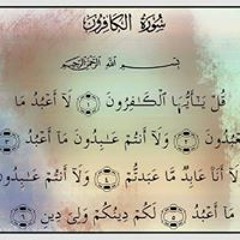 سُورَةُ الكَافِرُونَ
بِسْمِ اللَّهِ الرَّحْمَٰنِ الرَّحِيمِ
قُلْ يَٰٓأَيُّهَا ٱلْكَٰفِرُونَ ۝١ لَآ أَعْبُدُ مَا
تَعْبُدُونَ ۝٢ وَلَآ أَنتُمْ عَٰبِدُونَ مَآ أَعْبُدُ ۝٣
وَلَآ أَنَا۠ عَابِدٌ مَّا عَبَدتُّمْ ۝٤ وَلَآ أَنتُمْ عَٰبِدُونَ
مَآ أَعْبُدُ ۝٥ لَكُمْ دِينُكُمْ وَلِىَ دِينِ ۝٦